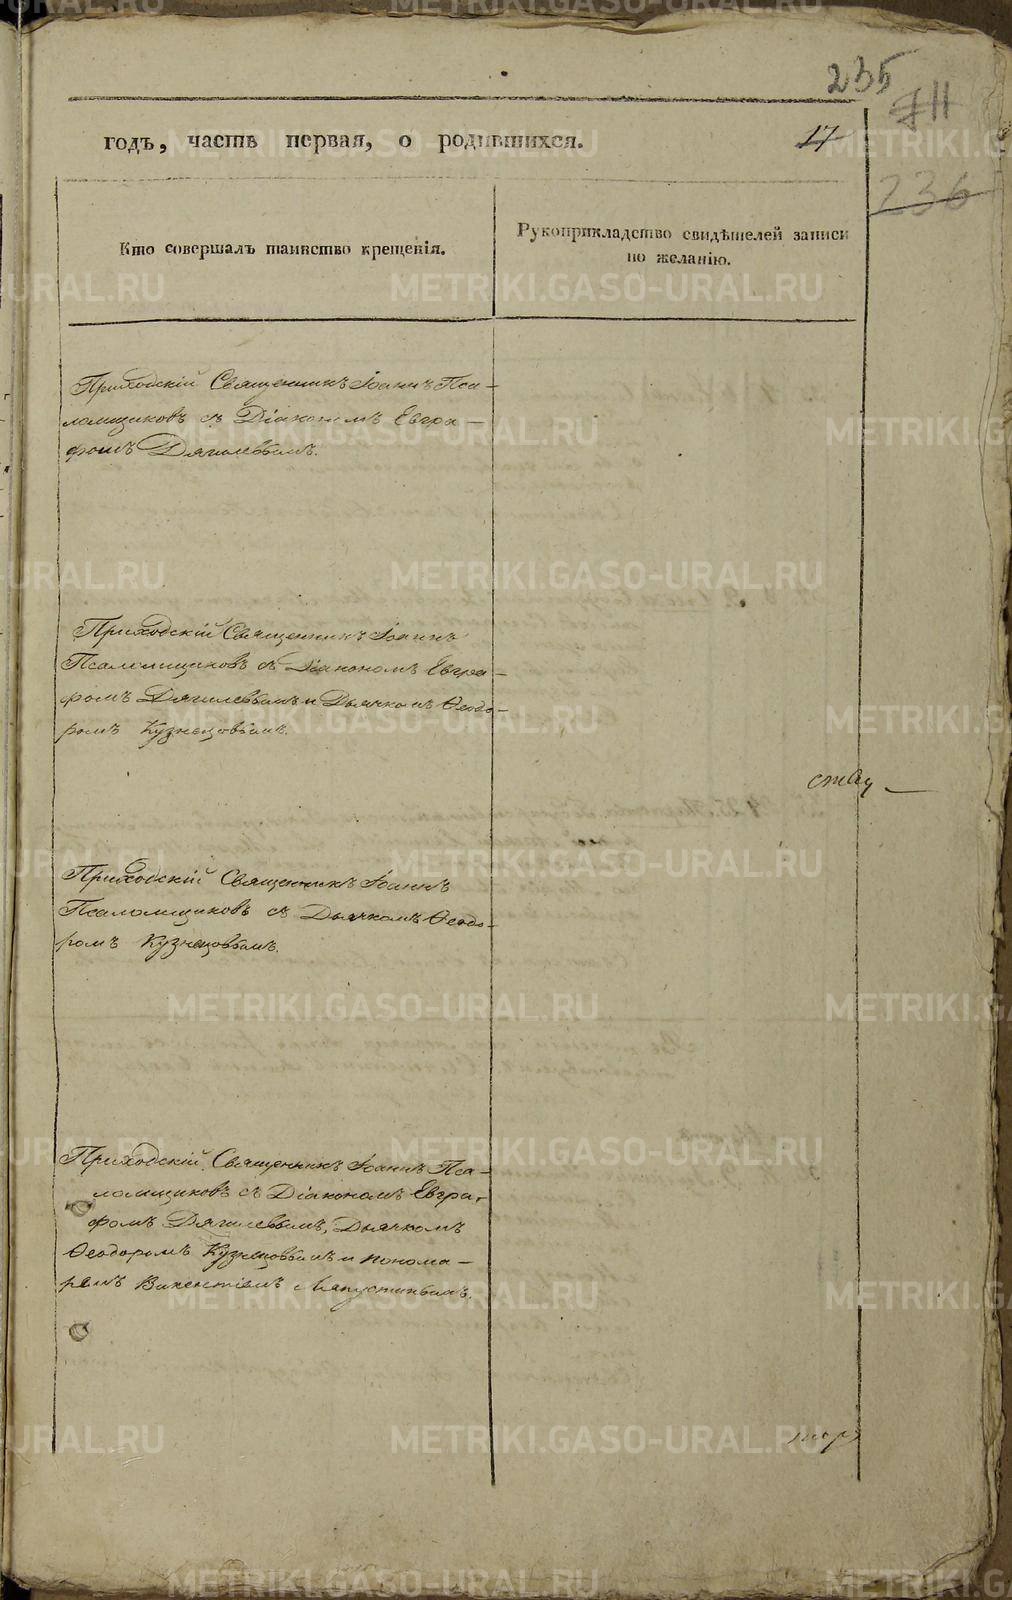 235
711
годъ, часть первая, о родившихся.
17
236
Кто совершалъ таинство крещенія.
Рукоприкладство свидѣтелей записи
по желанію.
Приходскій Священникъ Іоаннъ Пса-
ломщиковъ съ Діакономъ Евгра-
фомъ Дягилевымъ.
Приходскій Священникъ Іоаннъ
Псаломщиковъ съ Діакономъ Евгра-
фомъ Дягилевымъ и Дьячкомъ Ѳеодо-
ромъ Кузнецовымъ.
Приходскій Священникъ Іоаннъ
Псаломщиковъ съ Дьячкомъ Ѳеодо-
ромъ Кузнецовымъ.
Приходскій Священникъ Іоаннъ Пса-
ломщиковъ съ Діакономъ Евгра-
фомъ Дягилевымъ, Дьячкомъ
Ѳеодоромъ Кузнецовымъ и понома-
ремъ Викентіемъ Ляпустинымъ.
METRIKI.GASO-URAL.RU